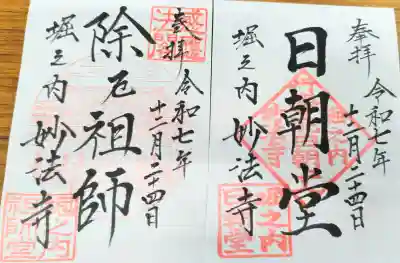 奉拝
令和七年
十二月二十四日
日朝堂
堀之内
妙法寺
奉拝
令和七年
十二月二十四日
除厄祖師
堀之内
妙法寺